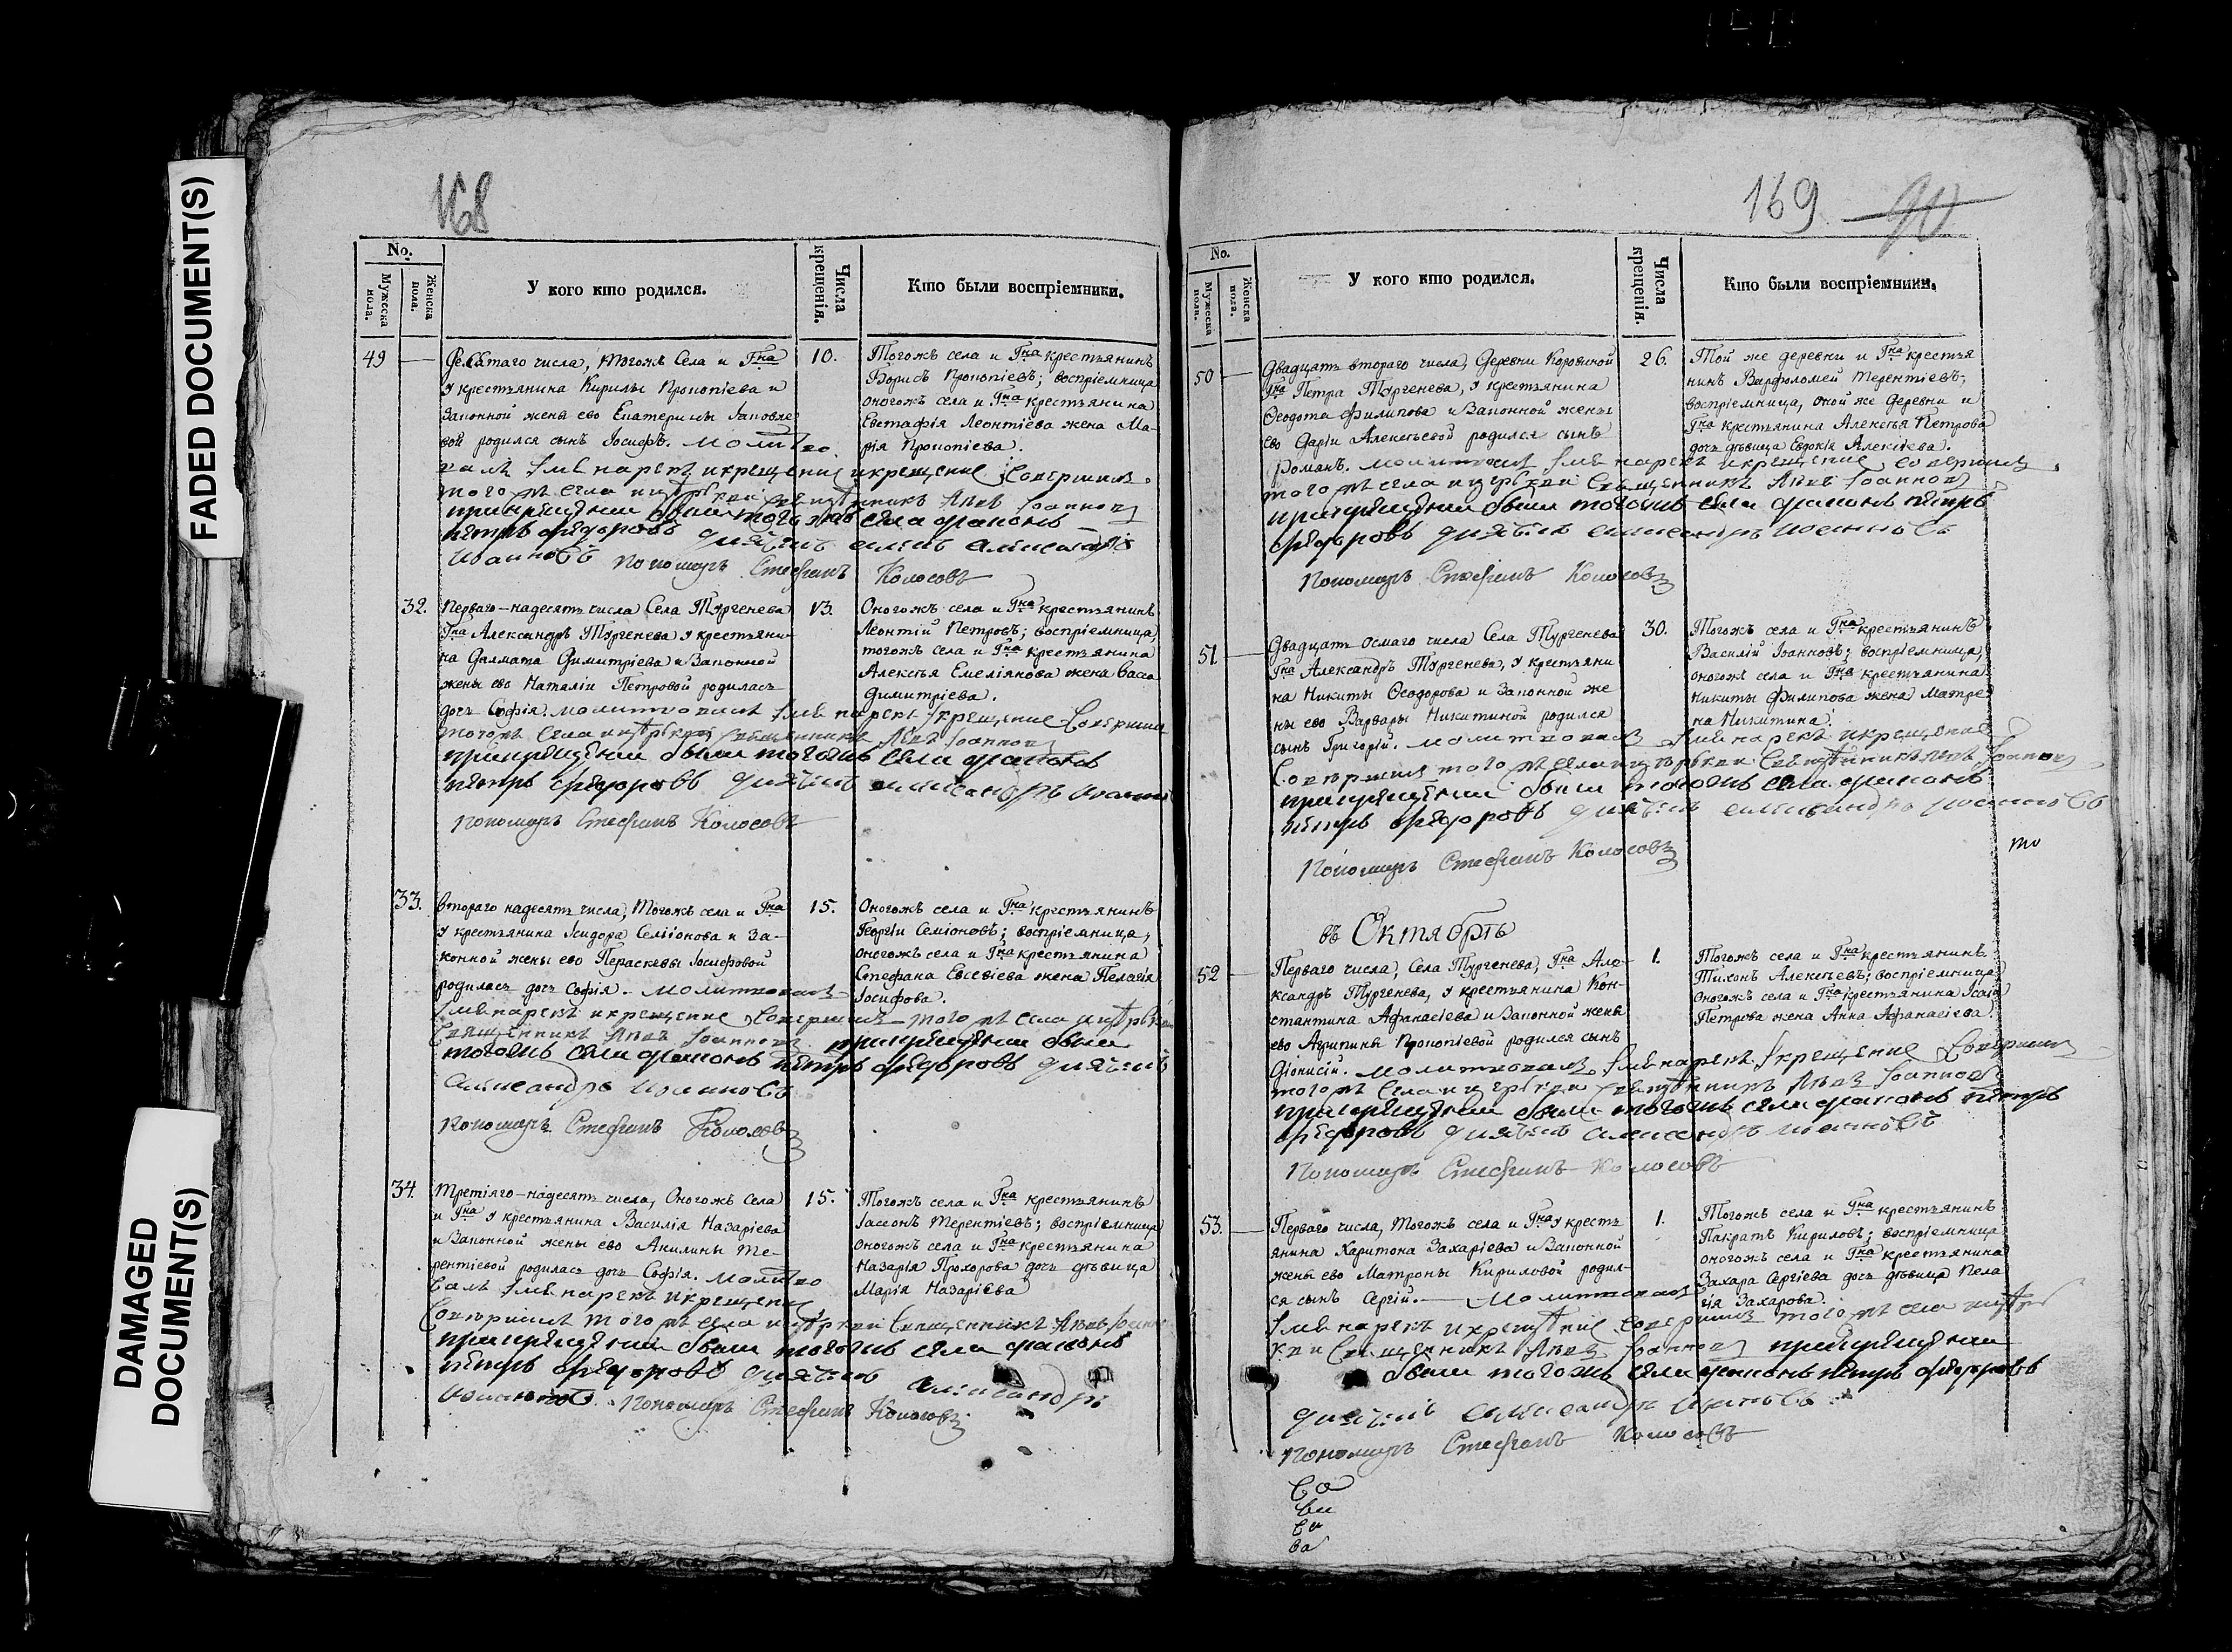 FADED DOCUMENT(S)
DAMAGED
DOCUMENT(S)
168
No.
Мужеска пола.
Женска пола.
У кого кто родился.
Числа крещенія.
Кто были воспріемники.
49
Девятаго числа, тогожъ Села и Гна
у крестьянина Кирилы Прокопіева и
Законной жены ево Екатерины Іаковле
вой родился сынъ Іосифъ. молитво
валъ Имя нарекъ и крещение совершилъ
тогожъ села и церкви священникъ Левъ Іоанновъ
при крещении были тогожъ села диаконъ
петръ федоровъ дьячекъ александръ
Иванновъ пономарь Стефанъ Колосовъ
10.
Тогожъ села и Гна крестьянинъ
Борисъ Прокопіевъ; воспріемница
оногожъ села и Гна крестьянина
Евстафія Леонтіева жена Ма-
рія Прокопіева.
32.
Перваго-надесять числа Села Тургенева
Гна Александръ Тургенева у крестьяни
на Далмата Димитріева и Законной
жены ево Наталіи Петровой родилась
дочь Софія. молитвовалъ Имя нарекъ и крещение Соверши
тогожъ села и церкви священникъ Левъ Іоанновъ
при крещении были тогожъ села диаконъ
петръ федоровъ дьячекъ александръ Иванн
пономарь Стефанъ Колосовъ
13.
Оногожъ села и Гна крестьянинъ
Леонтій Петровъ; воспріемница,
тогожъ села и Гна крестьянина
Алексѣя Емеліянова жена Васса
Димитріева.
33.
Втораго надесять числа, Тогожъ села и Гна
у крестьянина Исидора Семіонова и За-
конной жены ево Параскевы Іосифовой
родилась дочь Софія. Молитвовалъ
Имя нарекъ и крещение Совершилъ тогожъ села и церкви
Священникъ Левъ Іоанновъ при крещении были
тогожъ села диаконъ петръ федоровъ дьячекъ
Александръ Иванновъ
пономарь Стефанъ Колосовъ
15.
Оногожъ села и Гна крестьянинъ
Георгій Семіоновъ; воспріемница,
оногожъ села и Гна крестьянина
Стефана Евсевіева жена Пелагія
Іосифова.
34.
Третіяго-надесять числа, Оногожъ Села
и Гна у крестьянина Василія Назаріева
и Законной жены ево Акилины Те-
рентіевой родилась дочь Софія. Молитво
валъ Имя нарекъ и крещение
Совершилъ тогожъ села и церкви Священникъ Левъ
при крещении были тогожъ села диаконъ
петръ федоровъ дьячекъ Александръ
Иванновъ. пономарь Стефанъ Колосовъ
15.
Тогожъ села и Гна крестьянинъ
Іассонъ Терентіевъ; воспріемница
оногожъ села и Гна крестьянина
Назарія Прохорова дочь дѣвица
Марія Назаріева
169
90
No.
Мужеска пола.
Женска пола.
У кого кто родился.
Числа крещенія.
Кто были воспріемники.
50
Двадцать втораго числа, Деревни Коровиной
Гна Петра Тургенева, у крестьянина
Ѳеодота Филипова и Законной жены
ево Даріи Алексѣевой родился сынъ
Романъ. молитвовалъ Имя нарекъ и крещение совершилъ
тогожъ села и церкви Священникъ Левъ Іоанновъ
при крещении были тогожъ села диаконъ петръ
федоровъ дьячекъ александръ Иванновъ
Пономарь Стефанъ Колосовъ
26.
Той же деревни и Гна крестья
нинъ Варфоломей Терентіевъ;
воспріемница, оной же Деревни и
Гна крестьянина Алексѣя Петрова
дочь дѣвица Евдокія Алексіева.
51
Двадцать Осмаго числа Села Тургенева
Гна Александръ Тургенева, у крестьяни
на Никиты Ѳеодорова и Законной же
ны ево Варвары Никитиной родился
сынъ Григорій. молитвовалъ Имя нарекъ и крещение
Совершилъ тогожъ села и церкви Священникъ Левъ Іоаннов
при крещении были тогожъ села диаконъ
петръ федоровъ дьячекъ александръ Иванновъ
Пономарь Стефанъ Колосовъ
30.
Тогожъ села и Гна крестьянинъ
Василій Іоанновъ; воспріемница,
оногожъ села и Гна крестьянина
Никиты Филипова жена Матре
на Никитина.
то
въ Октябрѣ
52
Перваго числа, Села Тургенева, Гна Але-
ксандръ Тургенева, у крестьянина Кон-
стантина Афанасіева и Законной жены
ево Агрипины Прокопіевой родился сынъ
Діонисій. молитвовалъ Имя нарекъ и крещение Совершилъ
тогожъ Села и церкви Священникъ Левъ Іоанновъ
при крещении были тогожъ села диаконъ петръ
федоровъ дьячекъ александръ Иванновъ
Пономарь Стефанъ Колосовъ
1.
Тогожъ села и Гна крестьянинъ
Тихонъ Алексѣевъ; воспріемница
оногожъ села и Гна крестьянина Ісаіи
Петрова жена Анна Афанасіева.
53.
Перваго числа, Тогожъ села и Гна у кресть
янина Харитона Захаріева и Законной
жены ево Матроны Кириловой родил-
ся сынъ Сергій. Молитвовалъ
Имя нарекъ и крещение совершилъ тогожъ села и цер
кви Священникъ Левъ Іоанновъ при крещении
были тогожъ села диаконъ петръ федоровъ
дьячекъ александръ Иванновъ
Пономарь Стефанъ Колосовъ
1.
Тогожъ села и Гна крестьянинъ
Панкратъ Кириловъ; воспріемница
оногожъ села и Гна крестьянина
Захара Сергіева дочь дѣвица Пела
гія Захарова.